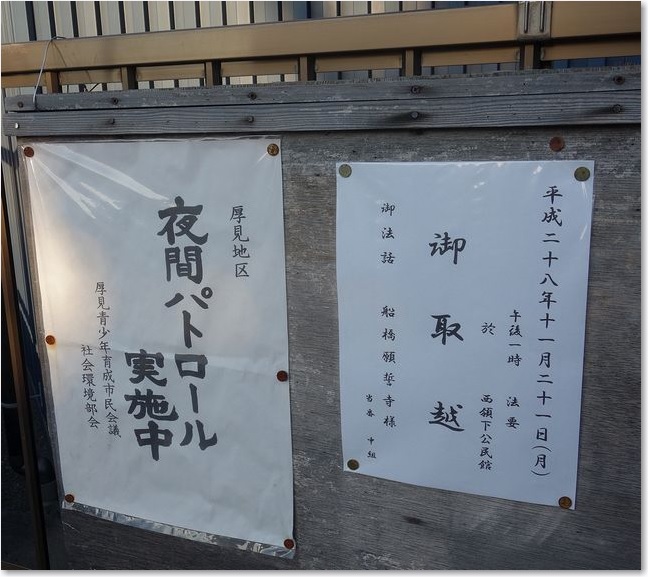 厚見地区
夜間パトロール
実施中
厚見青少年育成市民会議
社会環境部会
平成二十八年十一月二十一日(月)
午後一時 法要
於 西領下公民館
御取越
御法話 船橋願誓寺様
当番 中組